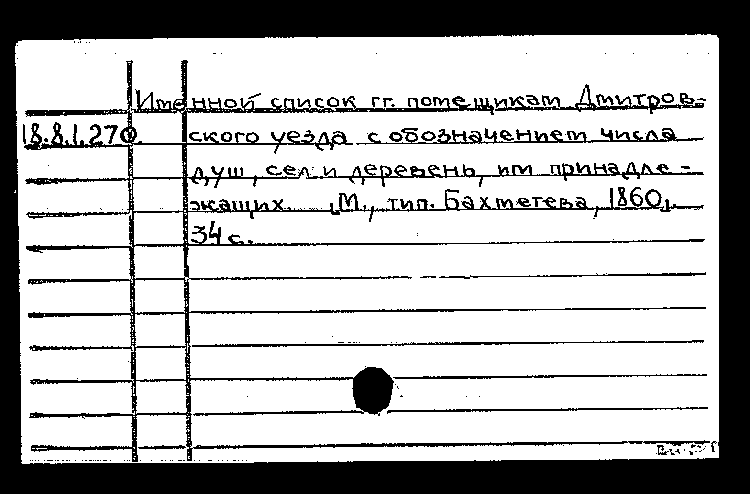 Именной список гг. помещикам Дмитров-
18.8.1.270. ского уезда с обозначением числа
душ, сел и деревень, им принадле-
жащих. [М., тип. Бахметева, 1860].
34 с.